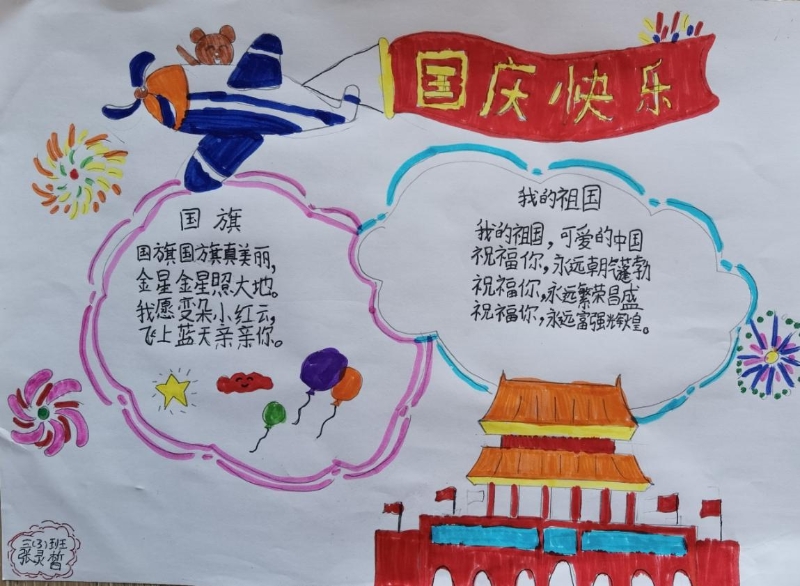 国庆快乐
国旗
国旗国旗真美丽,
金星金星照大地。
我愿变朵小红云,
飞上蓝天亲亲你。
我的祖国
我的祖国,可爱的中国
祝福你,永远朝气蓬勃
祝福你,永远繁荣昌盛
祝福你,永远富强光辉皇。
三(3)班
张灵皙